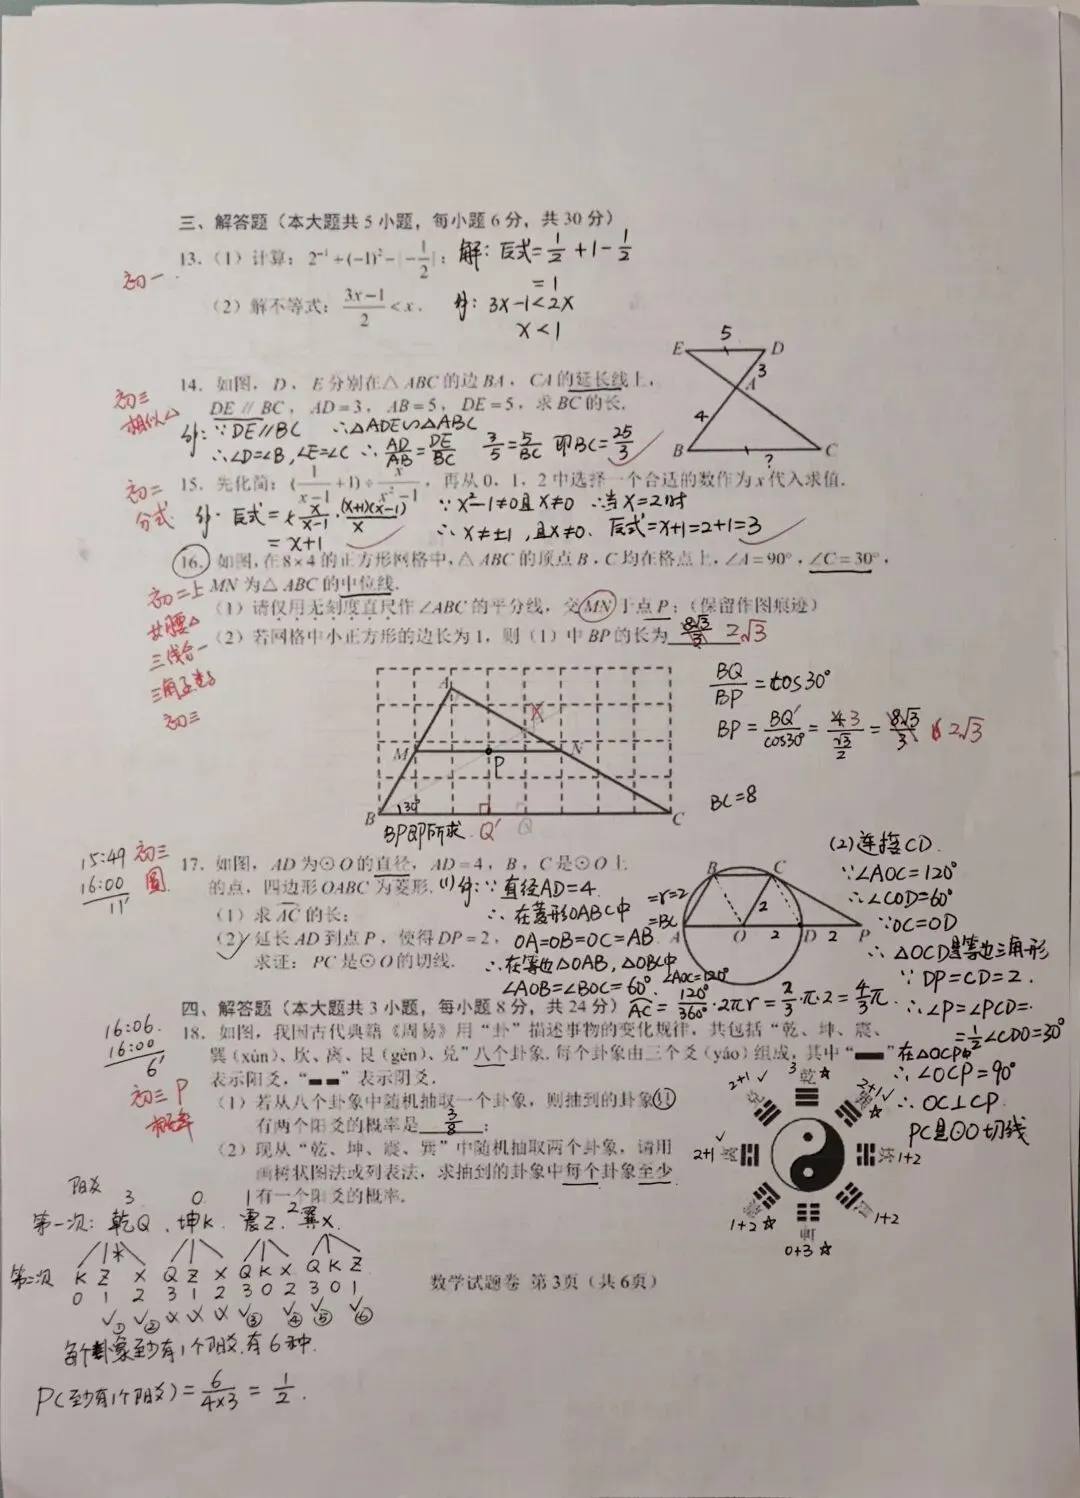 三、解答题（本大题共5小题，每小题6分，共30分）
13.（1）计算：2⁻¹+(-1)²-|-1/2|； 解：原式=1/2+1-1/2
=1
初一
（2）解不等式：(3x-1)/2<x. 解：3x-1<2x
x<1
14. 如图，D，E分别在△ABC的边BA，CA的延长线上，
DE∥BC，AD=3，AB=5，DE=5，求BC的长.
初三
相似△
解：∵DE∥BC ∴△ADE∽△ABC
∴∠D=∠B，∠E=∠C ∴AD/AB=DE/BC 3/5=5/BC 即BC=25/3
E 5 D
3
A
4
B ? C
15. 先化简：(1/(x-1)+1)÷x/(x²-1)，再从0，1，2中选择一个合适的数作为x代入求值.
初二
分式
解：原式=x/(x-1)·(x+1)(x-1)/x ∵x²-1≠0且x≠0 ∴当x=2时
=x+1 ∴x≠±1，且x≠0. 原式=x+1=2+1=3
16. 如图，在8×4的正方形网格中，△ABC的顶点B，C均在格点上，∠A=90°，∠C=30°，
MN为△ABC的中位线.
（1）请仅用无刻度直尺作∠ABC的平分线，交MN于点P；（保留作图痕迹）
（2）若网格中小正方形的边长为1，则（1）中BP的长为 8√3/3 2√3
初二上
三线合一
初三
BQ/BP=cos30°
BP=BQ'/cos30°=43/(√3/2)=8√3/3 2√3
BC=8
A
M P N
B 30° C
BP即所求 Q' Q
15:49
16:00
11'
初三
圆
17. 如图，AD为⊙O的直径，AD=4，B，C是⊙O上
的点，四边形OABC为菱形.
（1）求AC的长；
（2）延长AD到点P，使得DP=2，
求证：PC是⊙O的切线.
(1)解：∵直径AD=4
∴在菱形OABC中 =r=2
OA=OB=OC=AB =BC
∴在等边△OAB，△OBC中
∠AOB=∠BOC=60° ∠AOC=120°
AC=120°/360°·2πr=2/3·π·2=4/3π
B C
2
A O 2 D 2 P
(2)连接CD.
∵∠AOC=120°
∴∠COD=60°
∵OC=OD
∴△OCD是等边三角形
∵DP=CD=2.
∴∠P=∠PCD=
=1/2∠CDO=30°
在△OCP中
∴∠OCP=90°
∴OC⊥CP
PC是⊙O切线
四、解答题（本大题共3小题，每小题8分，共24分）
16:06
16:00
6'
初三 P
概率
18. 如图，我国古代典籍《周易》用“卦”描述事物的变化规律，共包括“乾、坤、震、
巽（xùn）、坎、离、艮（gèn）、兑”八个卦象. 每个卦象由三个爻（yáo）组成，其中“▬▬”
表示阳爻，“▬ ▬”表示阴爻.
（1）若从八个卦象中随机抽取一个卦象，则抽到的卦象
有两个阳爻的概率是 3/8 ；
（2）现从“乾、坤、震、巽”中随机抽取两个卦象，请用
画树状图法或列表法，求抽到的卦象中每个卦象至少
有一个阳爻的概率.
3 乾 ☆
2+1 ✓ 2+1 ✓ ☆
2+1 1+2
1+2 ☆ 1+2
0+3 ☆
阳爻 3 0 1 2
第一次：乾Q、坤K. 震Z. 巽X.
第二次 K Z X Q Z X Q K X Q K Z
0 1 2 3 1 2 3 0 2 3 0 1
✓① ✓② × × × ✓③ ✓④ ✓⑤ ✓⑥
每个卦象至少有1个阳爻.有6种.
P(至少有1个阳爻)=6/(4×3)=1/2.
数学试题卷 第3页（共6页）